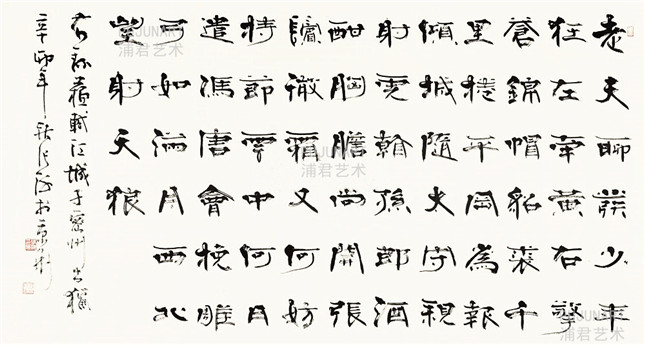 老夫聊發少年
狂左牽黃右擎
蒼錦帽貂裘千
里捲平岡為報
傾城隨太守親
射虎看孫郎酒
酣胸膽尚開張
鬢微霜又何妨
持節雲中何月
遣馮唐會挽雕
弓如滿月西北
望射天狼
右錄蘇軾江城子密州出獵
辛卯年秋張海於
浦君艺术